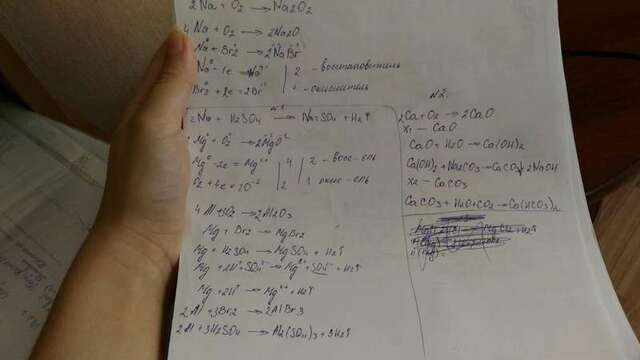 2Na + O2 → Na2O2
4 Na + O2 → 2Na2O
Na⁰ + Br2⁰ → 2NaBr
Na⁰ - 1e → Na⁺ | 2 - восстановитель
Br2⁰ + 2e = 2Br⁻ | 1 - окислитель
2Na + H2SO4 → Na2SO4 + H2↑
Mg⁰ + O2⁰ → 2Mg⁺²O⁻²
Mg⁰ - 2e = Mg²⁺ | 4 | 2 - восс-ель
O2 + 4e = 2O⁻² | 2 | 1 окис-ель
4 Al + 3O2 → 2Al2O3
Mg + Br2 → MgBr2
Mg + H2SO4 → MgSO4 + H2↑
Mg + 2H⁺ + SO4²⁻ → Mg²⁺ + SO4²⁻ + H2↑
Mg + 2H⁺ → Mg²⁺ + H2↑
2Al + 3Br2 → 2AlBr3
2Al + 3H2SO4 → Al2(SO4)3 + 3H2↑
№2.
2Ca + O2 → 2CaO
X1 - CaO
CaO + H2O → Ca(OH)2
Ca(OH)2 + Na2CO3 → CaCO3↓ + 2NaOH
X2 - CaCO3
CaCO3 + H2O + CO2 → Ca(HCO3)2